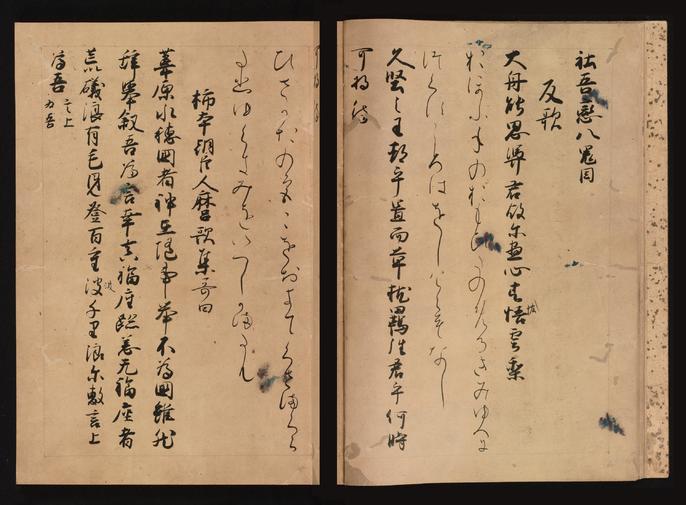 社吾恋八鬼目
反歌
大舟能思憑君故尓盡心者悟雲梨
惜
おほふねのおもひたのめるきみゆへに
つくすこゝろはをしくもなし
久堅之王都乎置而草枕羈往君乎何時
可将待
ひさかたのみやこをおきてくさまくら
たひゆくきみをいつしかまたむ
柿本朝臣人麻呂歌集哥曰
葦原水穂國者神在随事擧不為國雖然
辞擧叙吾為言幸真福座跙恙无福座者
荒礒浪有毛見登百重波千重浪尓敷言上
為吾
言上
為吾